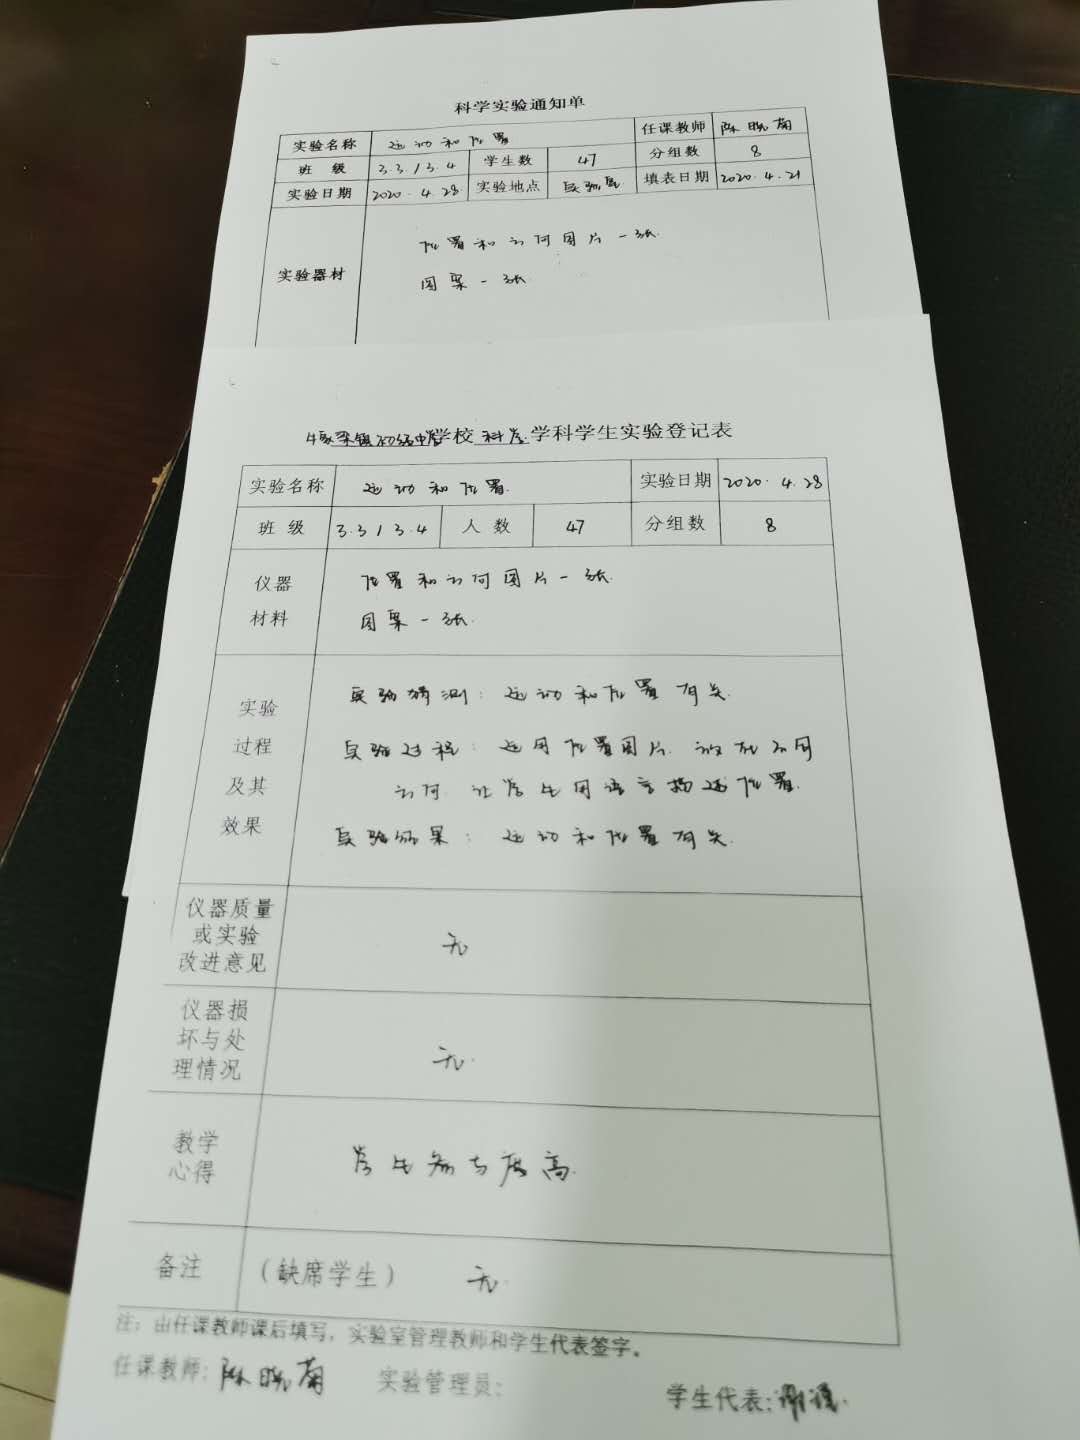 科学实验通知单
实验名称 运动和位置 任课教师 陈晓菊
班 级 3.3/3.4 学生数 47 分组数 8
实验日期 2020.4.28 实验地点 实验室 填表日期 2020.4.21
实验器材
位置和方向图片一张
图案一张
学校 科学 学科学生实验登记表
实验名称 运动和位置 实验日期 2020.4.28
班 级 3.3/3.4 人 数 47 分组数 8
仪器材料
位置和方向图片一张
图案一张
实验过程及其效果
实验猜测：运动和位置有关.
实验过程：运用位置图片.放在不同
方向 让学生用语言描述位置.
实验结果：运动和位置有关.
仪器质量或实验改进意见 无
仪器损坏与处理情况 无.
教学心得 学生参与度高.
备注 （缺席学生） 无.
注：由任课教师课后填写，实验室管理教师和学生代表签字。
任课教师：陈晓菊 实验管理员： 学生代表：